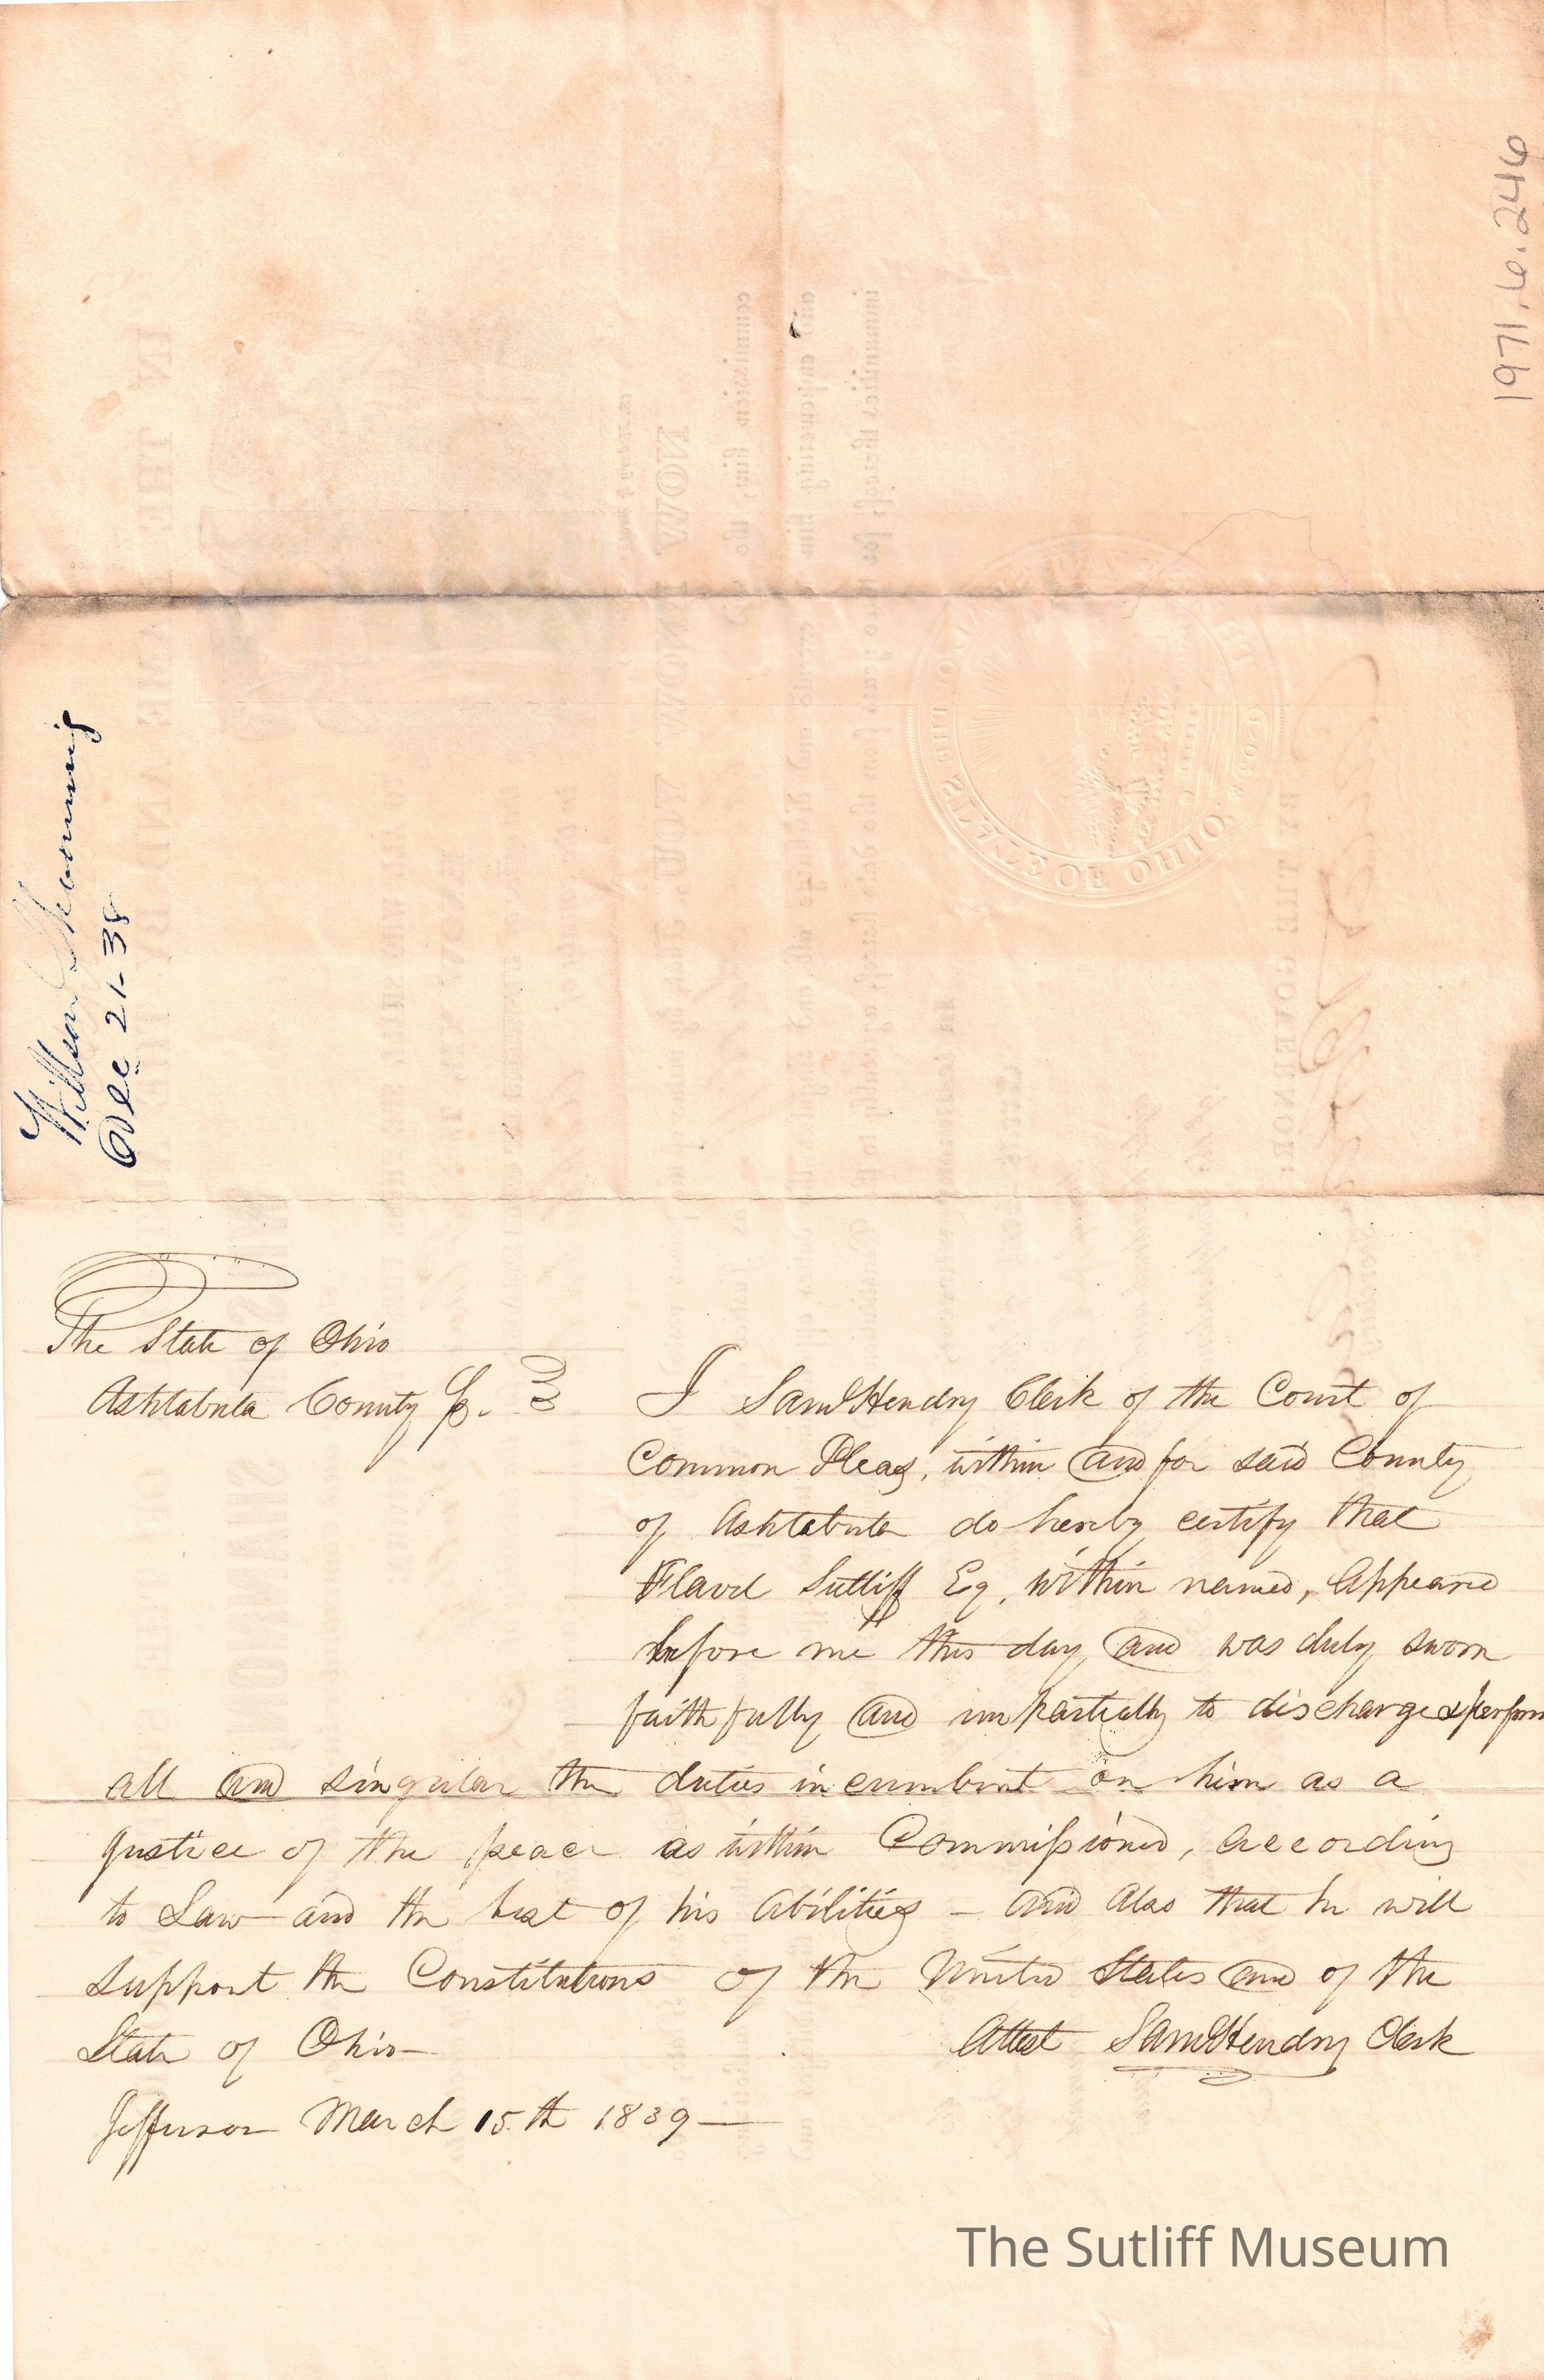 1971.6.246
Dec 21-38
The State of Ohio
Ashtabula County Ss.
I Saml Hendry Clerk of the Court of
Common Pleas, within and for said County
of Ashtabula do hereby certify that
Flavel Sutliff Eq, within named, Appeared
before me this day, and was duly sworn
faithfully and impartially to discharge & perform
all and singular the duties incumbent on him as a
Justice of the peace as within Commissioned, according
to Law and the best of his Abilities - and Also that he will
support the Constitutions of the United States and of the
State of Ohio-
Attest Saml Hendry Clerk
Jefferson March 15th 1839-
STATE OF OHIO
The Sutliff Museum